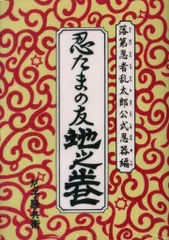 落第忍者乱太郎公式忍器編
忍たまの友
地之巻
尼子騒兵衛